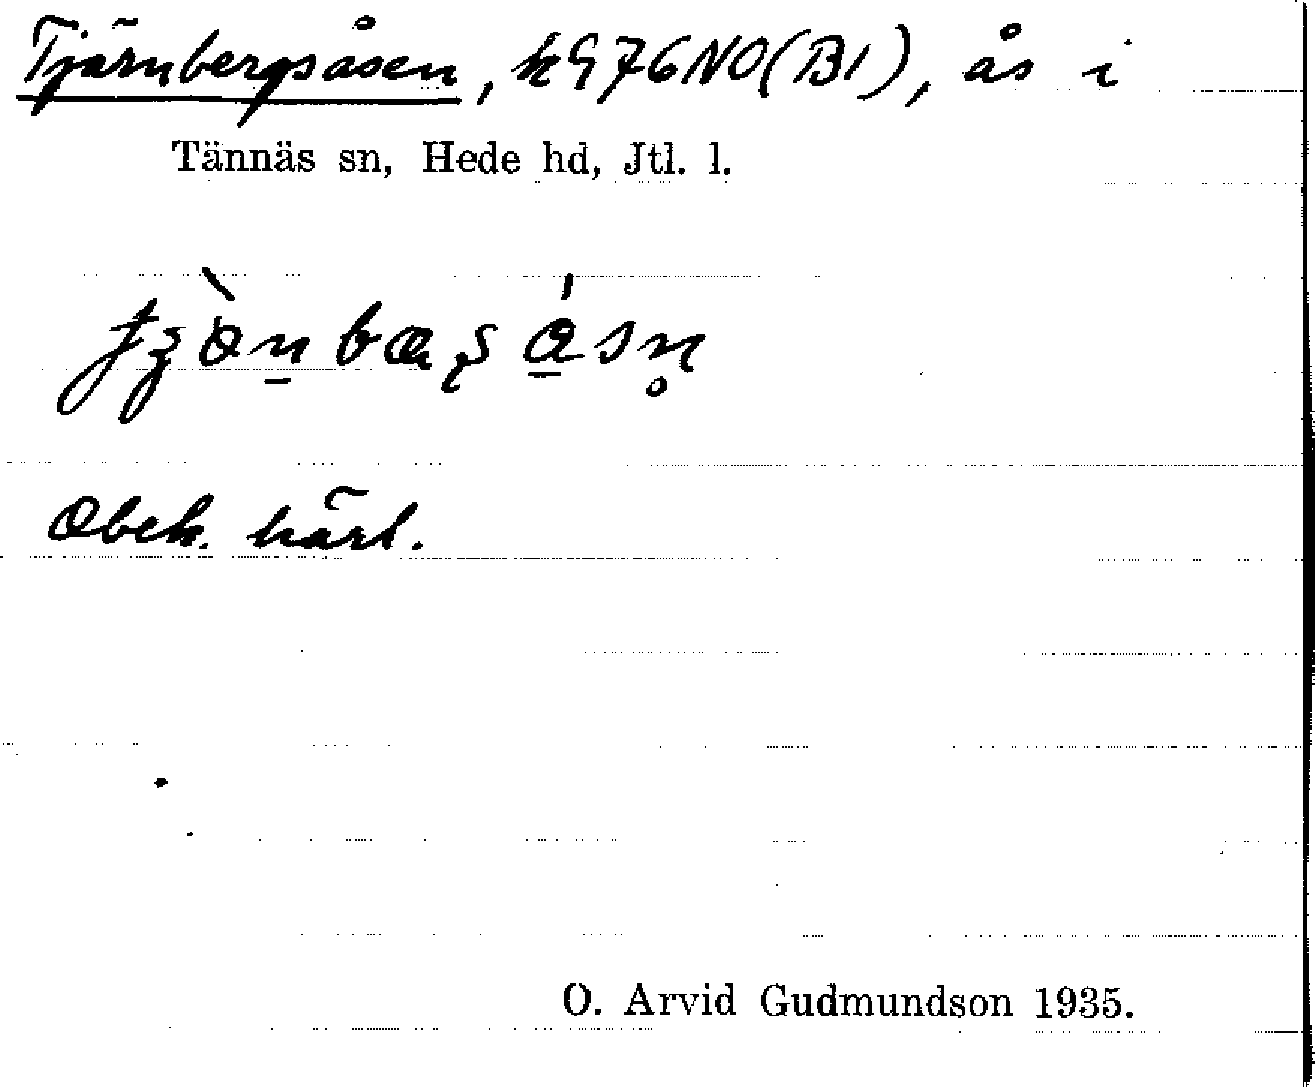 Tjärnbergsåsen, kG76NO(B1), ås i
Tännäs sn, Hede hd, Jtl. l.
Obek. härl.
O. Arvid Gudmundson 1935.